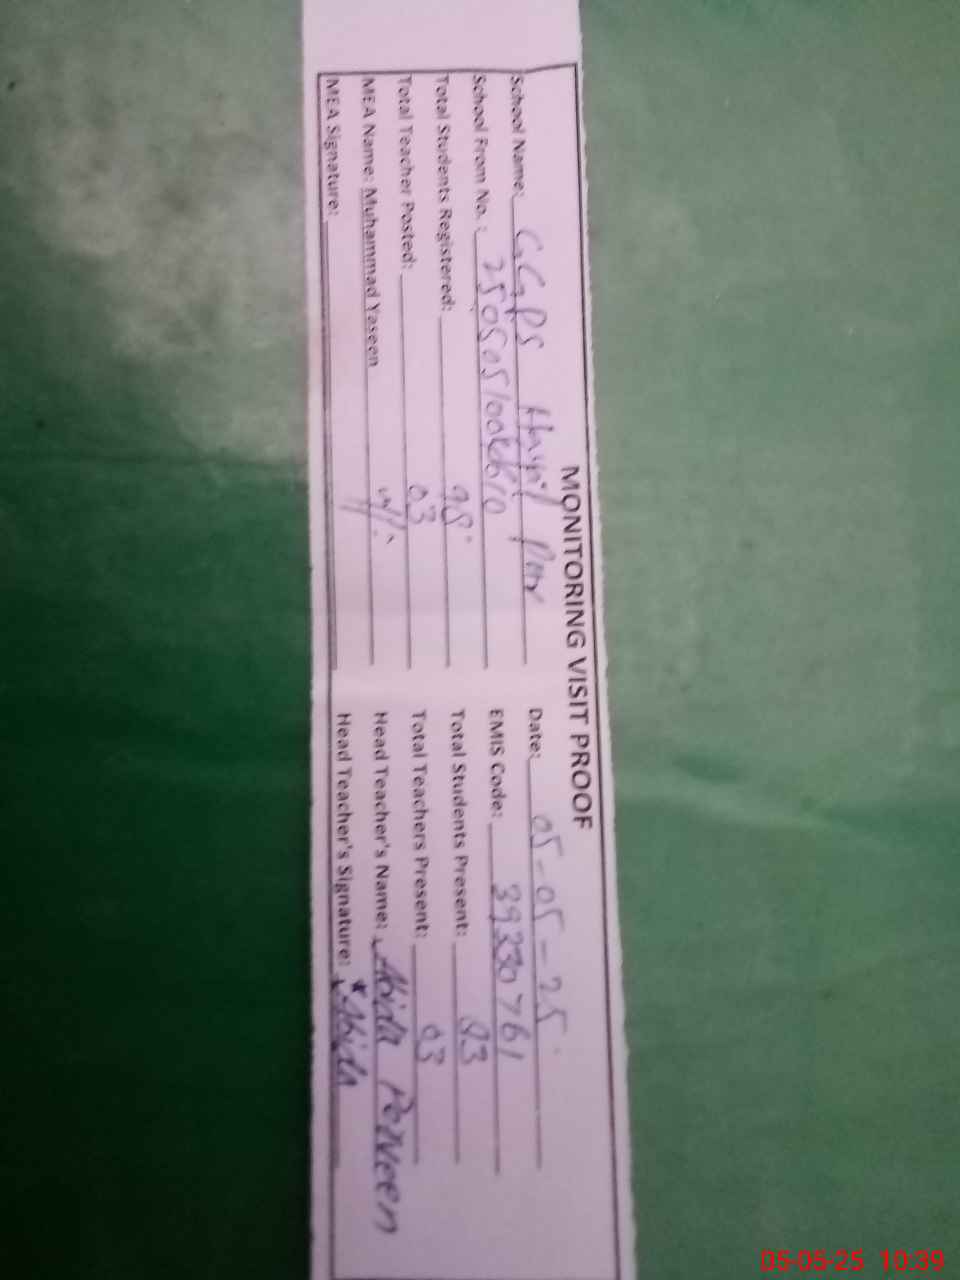 MONITORING VISIT PROOF
School Name: GGPS Pur Date: 05-05-25
School From No. : EMIS Code: 39330761
Total Students Registered: 98 Total Students Present: 83
Total Teacher Posted: 03 Total Teachers Present: 03
MEA Name: Muhammad Yaseen Head Teacher's Name: Abida Perveen
MEA Signature: Head Teacher's Signature: Abida
05-05-25 10:39